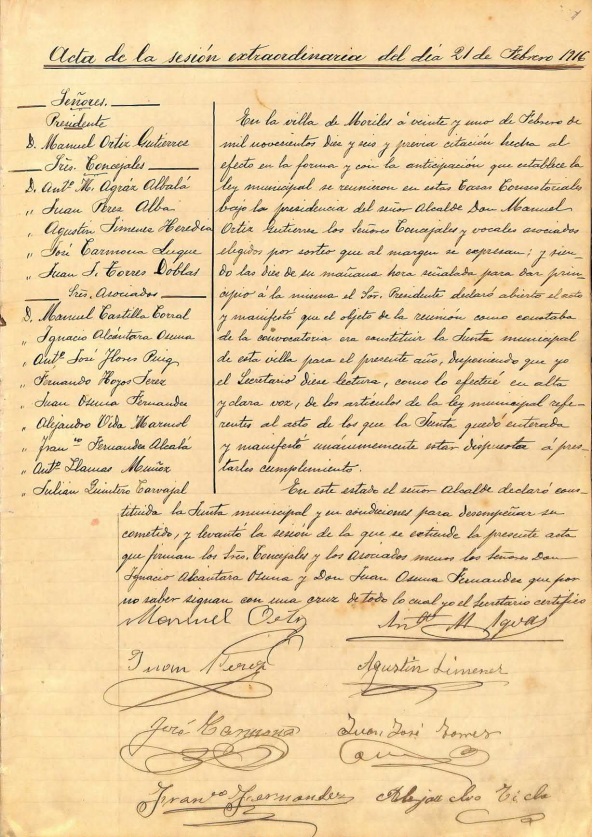 Acta de la sesión extraordinaria del día 21 de Febrero 1916
Señores.
Presidente
D. Manuel Ortiz Gutierres
Sres. Concejales
D. Antº. M. Agráz Albalá
" Juan Perez Alba
" Agustín Jimenez Heredia
" José Carmona Luque
" Juan J. Torres Doblas
Sres. Asociados
D. Manuel Castilla Corral
" Ignacio Alcántara Osuna
" Antº. José Flores Puig
" Fernando Hoyos Jerez
" Juan Osuna Fernandez
" Alejandro Vida Marmol
" Franco. Fernandez Alcalá
" Antº. Llamas Muñoz
" Julián Quintero Carvajal
En la villa de Moriles á veinte y uno de Febrero de
mil novecientos diez y seis y previa citación hecha al
efecto en la forma y con la anticipación que establece la
ley municipal se reunieron en estas Casas Consistoriales
bajo la presidencia del señor Alcalde Don Manuel
Ortiz Gutierrez los Señores Concejales y vocales asociados
elegidos por sorteo que al margen se expresan; y sien-
do las diez de su mañana hora señalada para dar prin-
cipio á la misma el Sor. Presidente declaró abierto el acto
y manifestó que el objeto de la reunión como constaba
de la convocatoria era constituir la Junta municipal
de esta villa para el presente año, disponiendo que yo
el Secretario diese lectura, como lo efectué en alta
y clara voz, de los artículos de la ley municipal refe-
rentes al acto de los que la Junta quedó enterada
y manifestó unánimemente estar dispuesta á pres-
tarles cumplimiento.
En este estado el señor Alcalde declaró cons-
tituida la Junta municipal y en condiciones para desempeñar su
cometido, y levantó la sesión de la que se extiende la presente acta
que firman los Sres. Concejales y los Asociados menos los Señores Don
Ignacio Alcantara Osuna y Don Juan Osuna Fernandez que por
no saber signan con una cruz de todo lo cual yo el Secretario certifico
Manuel Ortiz
Antº M. Agraz
Juan Perez
Agustín Jimenez
José Carmona
Juan José Torres
Franco Fernandez